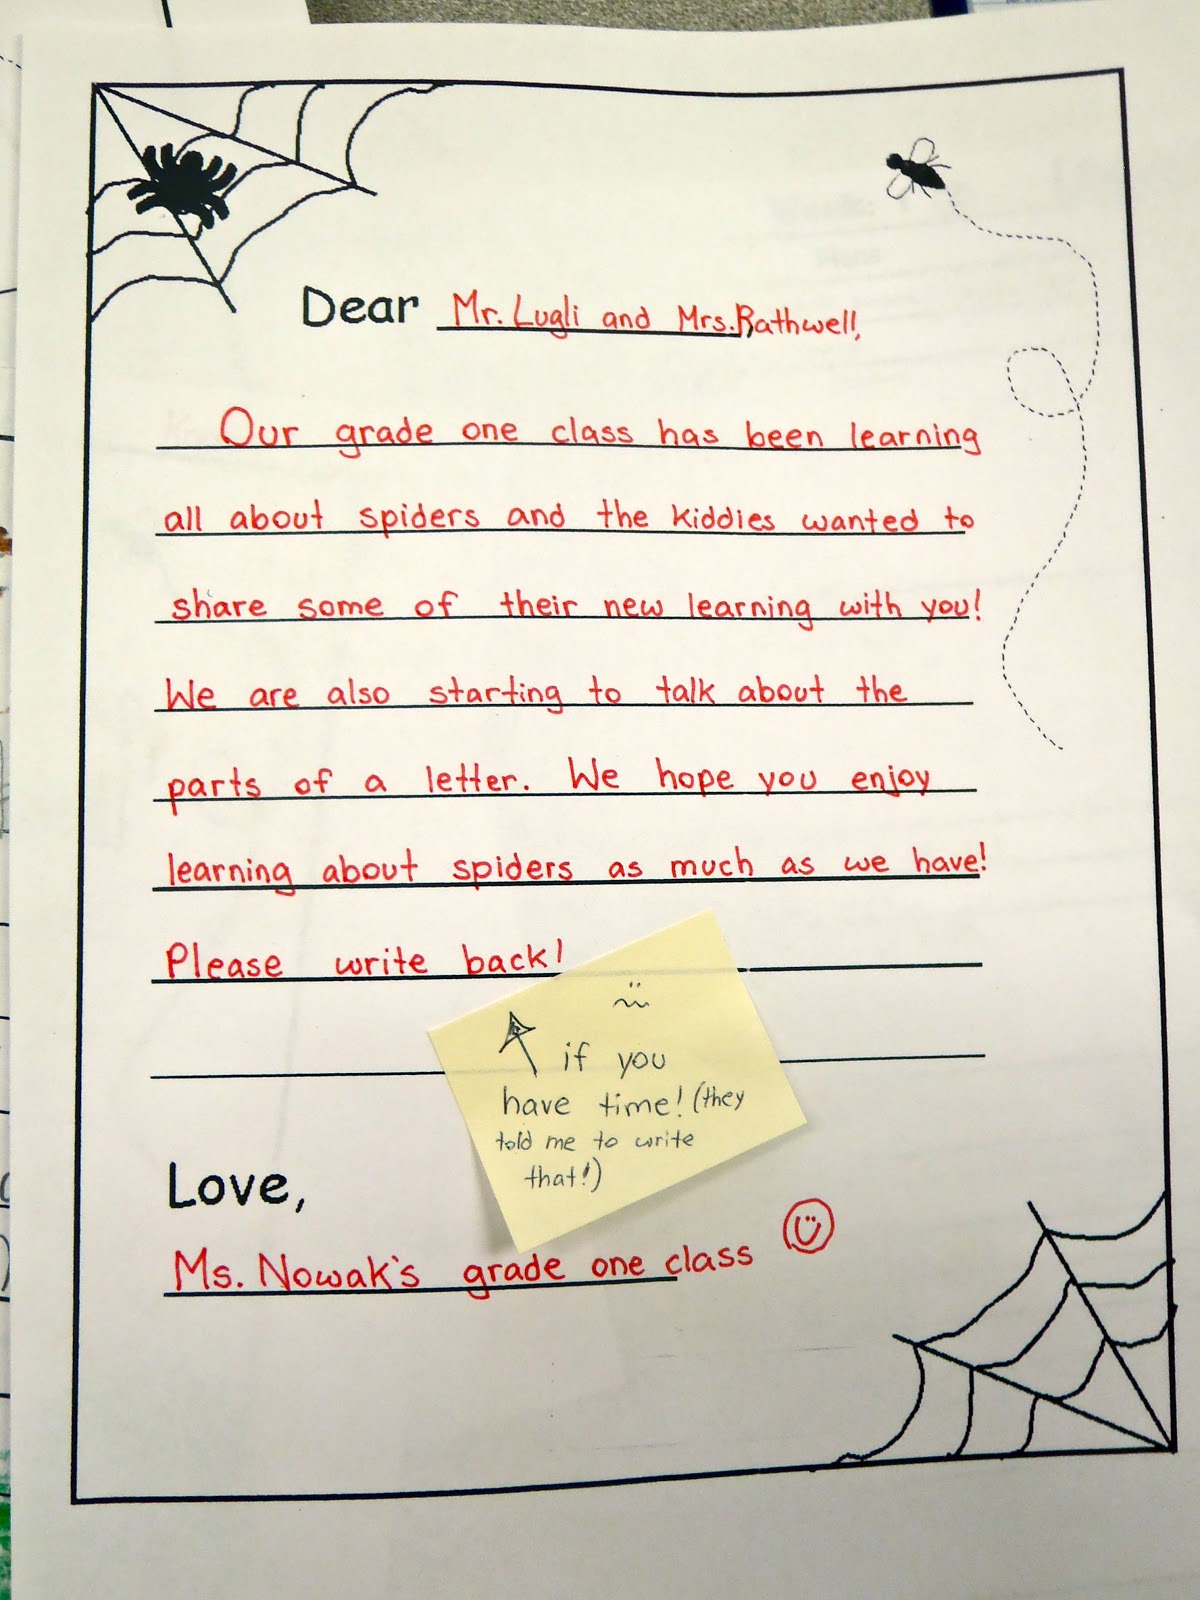 Dear Mr. Lugli and Mrs. Rathwell,
Our grade one class has been learning
all about spiders and the kiddies wanted to
share some of their new learning with you!
We are also starting to talk about the
parts of a letter. We hope you enjoy
learning about spiders as much as we have!
Please write back!
if you
have time! (they
told me to write
that!)
Love,
Ms. Nowak's grade one class